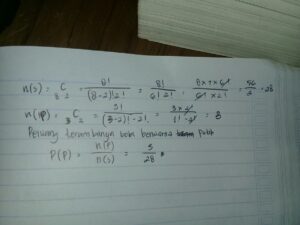 n(s) = 8C2 = 8! / (8-2)! 2! = 8! / 6! 2! = 8 x 7 x 6! / 6! x 2! = 56 / 2 = 28
n(P) = 3C2 = 3! / (3-2)! - 2! = 3 x 2! / 1! - 2! = 3
Peluang terambilnya bola berwarna putih
P(P) = n(P) / n(s) = 3 / 28